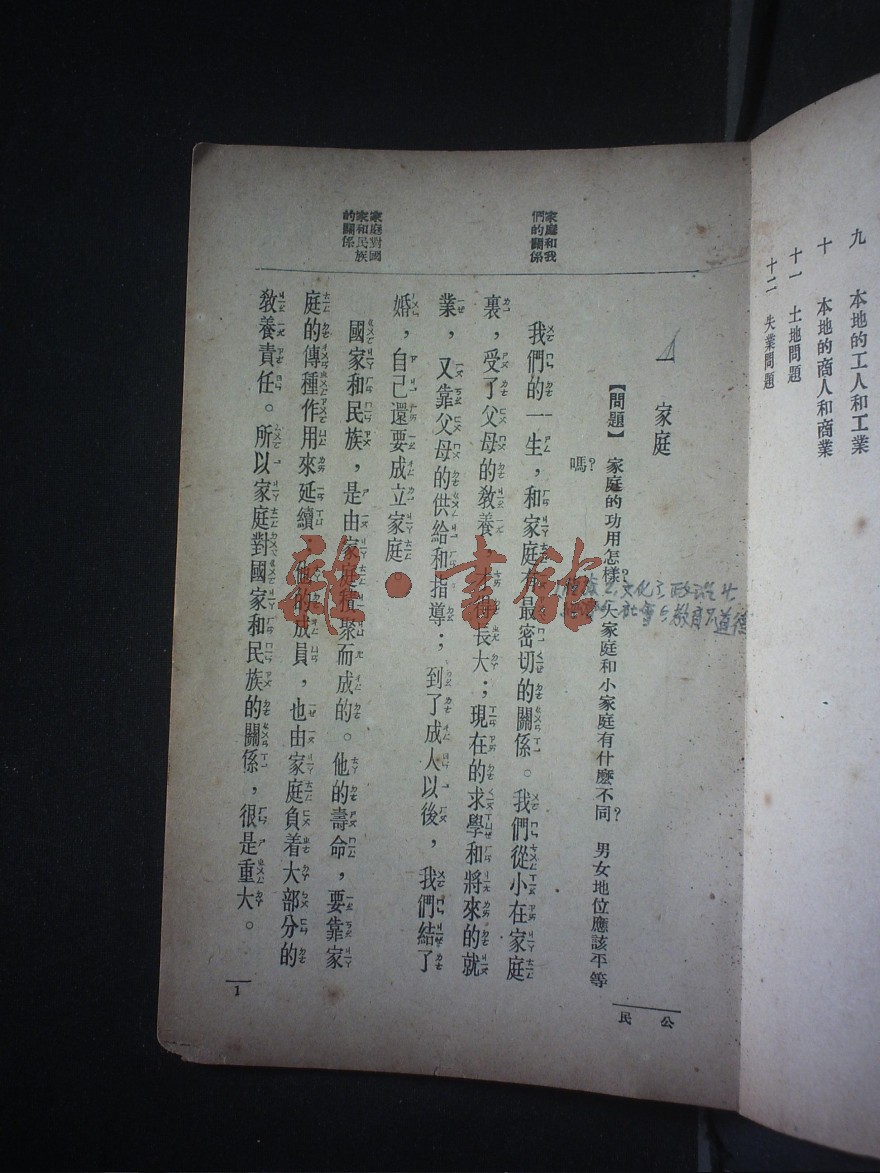 九　本地的工人和工業
十　本地的商人和商業
十一　土地問題
十二　失業問題
一　家庭
【問題】　家庭的功用怎樣？大家庭和小家庭有什麼不同？　男女地位應該平等
嗎？
文化
社會　教育　道德
家庭和我
們的關係
我們的一生，和家庭有最密切的關係。我們從小在家庭
裏，受了父母的敎養，才得長大；現在的求學和將來的就
業，又靠父母的供給和指導；到了成人以後，我們結了
婚，自己還要成立家庭。
家庭對國
家和民族
的關係
國家和民族，是由家庭積聚而成的。他的壽命，要靠家
庭的傳種作用來延續；他的成員，也由家庭負着大部分的
敎養責任。所以家庭對國家和民族的關係，很是重大。
公民
1
雜·書館